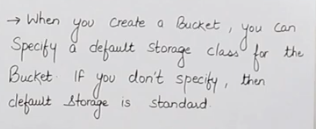 → When you create a Bucket, you can
Specify a default storage class for the
Bucket. If you don't specify, then
default storage is standard.